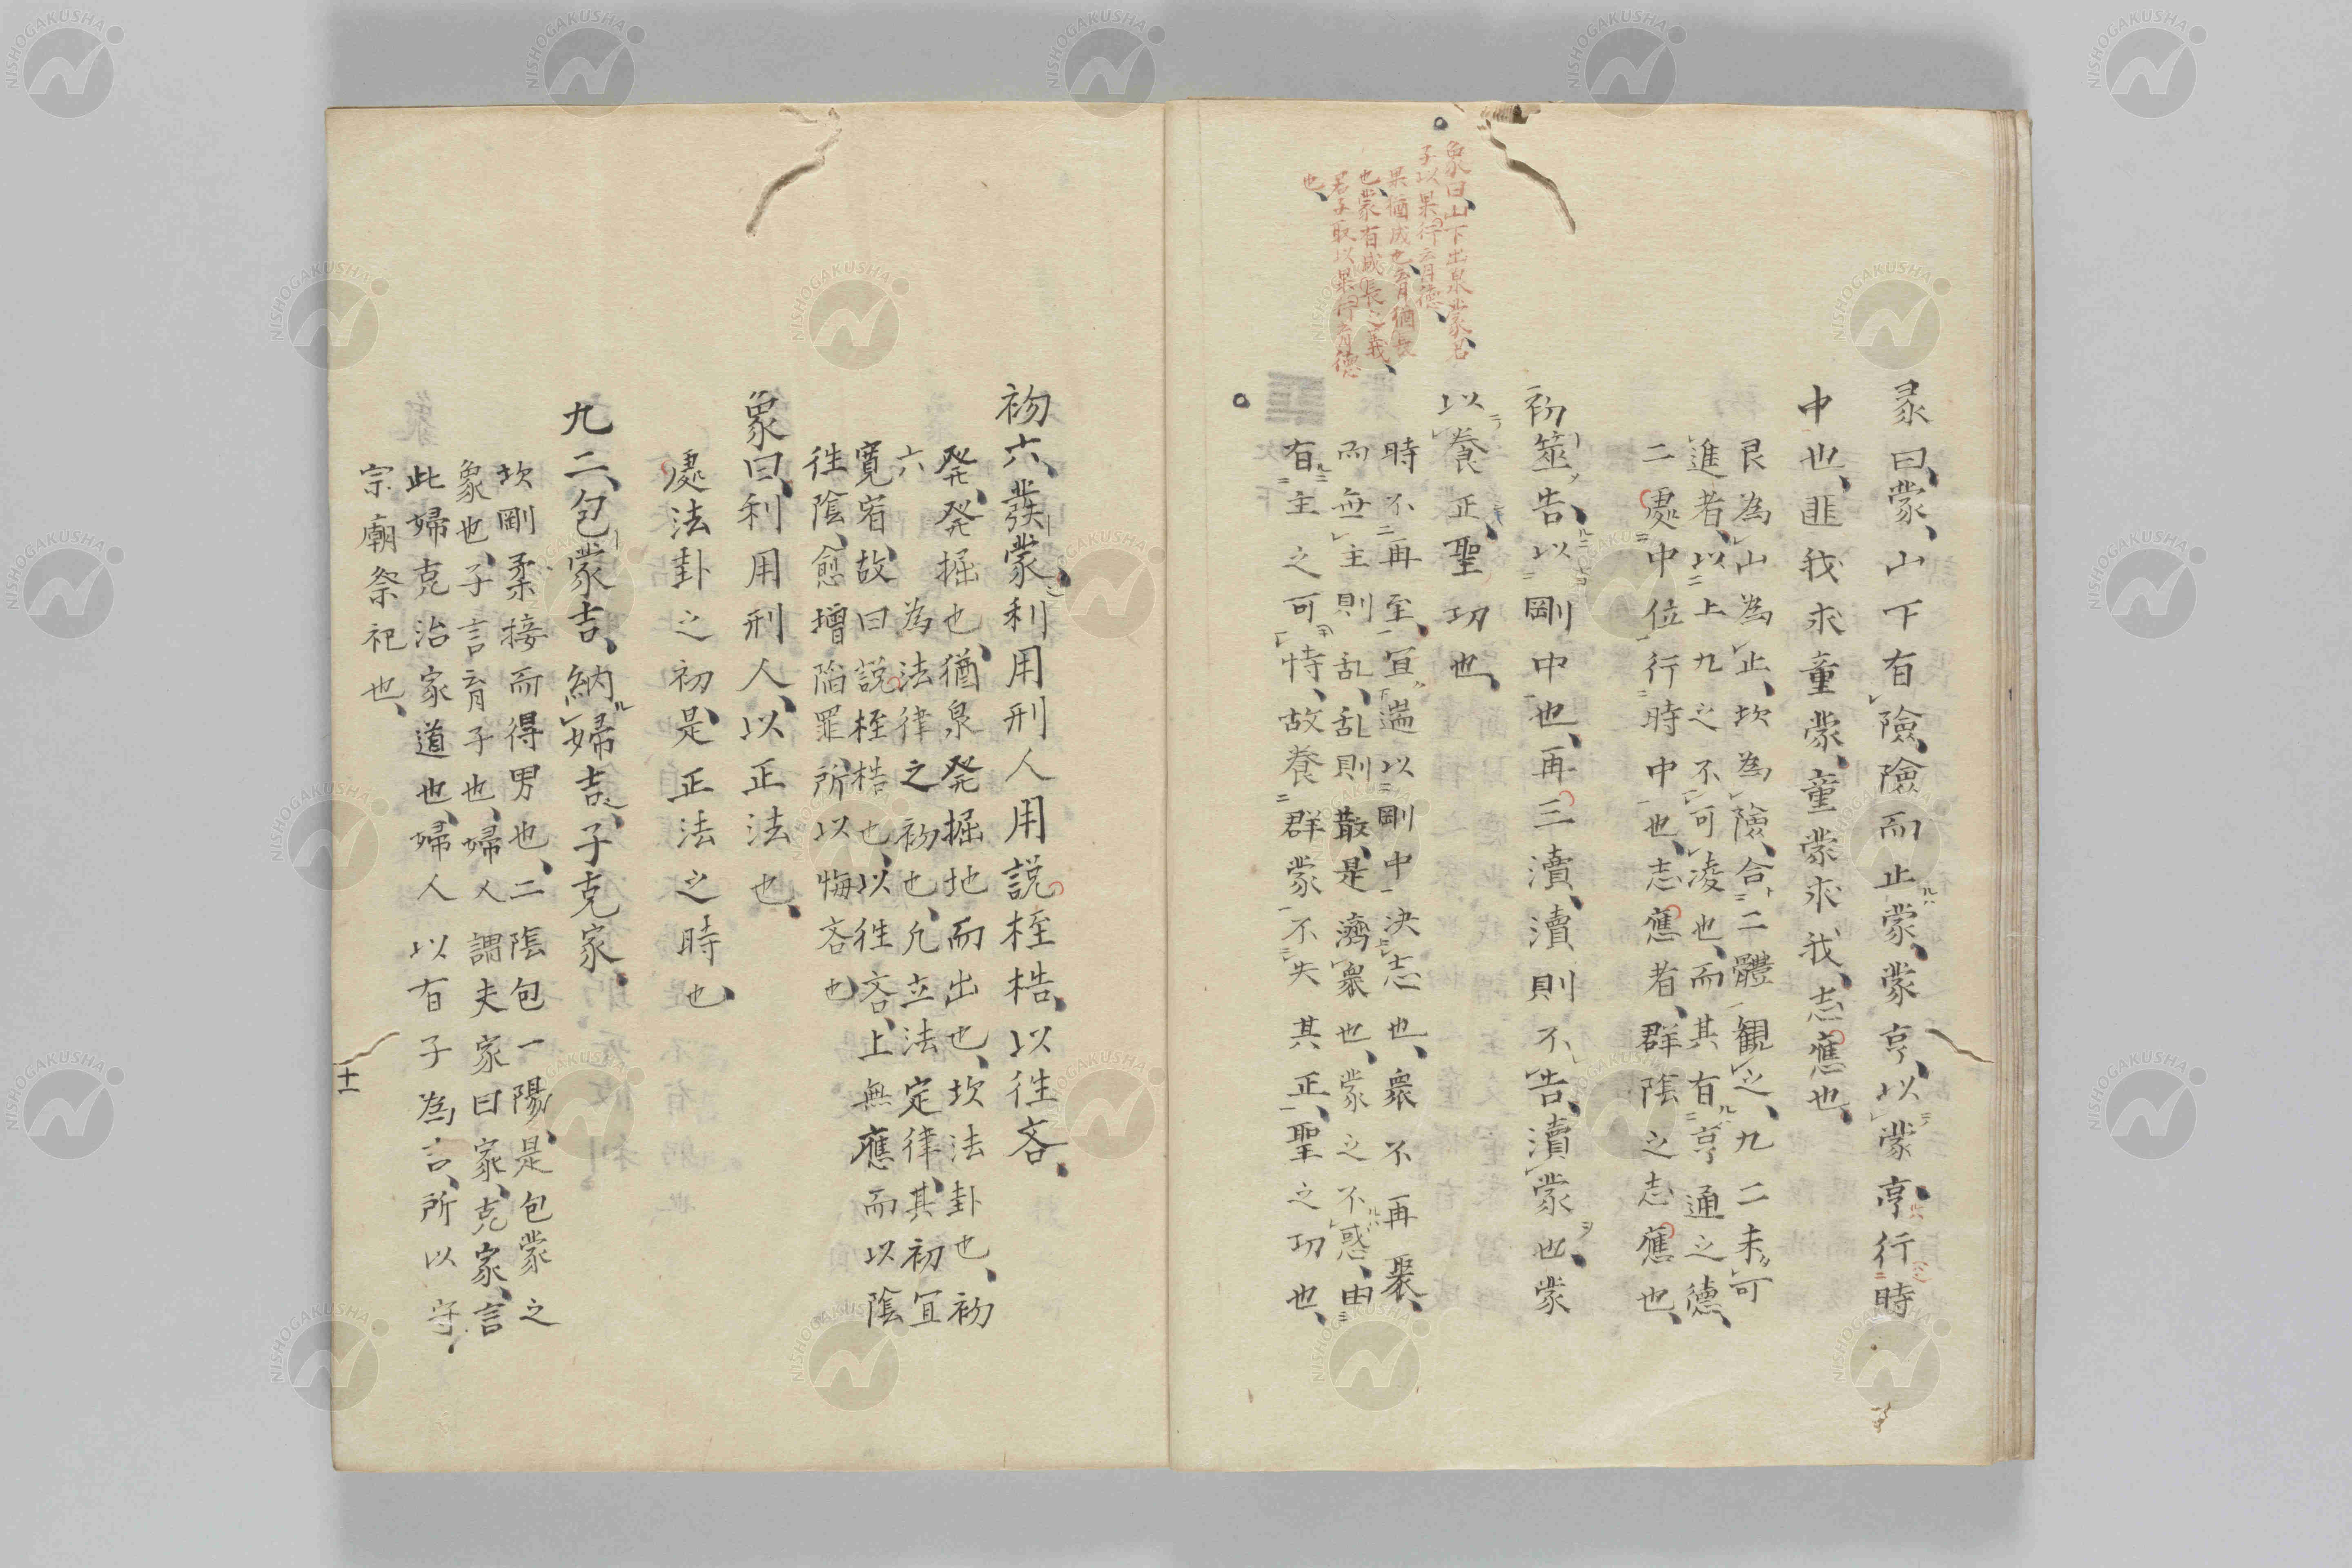 彖曰、蒙、山下有險、險而止蒙、蒙亨、以蒙亨、行時
中也、匪我求童蒙、童蒙求我、志應也、
艮為山為止、坎為險、合二體観之、九二未可
進者、以上九之不可凌也、而其有亨通之德、
二處中位行時中也、志應者、群陰之志應也、
初筮告、以剛中也、再三瀆、瀆則不告、瀆蒙也、蒙
以養正、聖功也、
時不再至、宜遄以剛中決志也、衆不再聚、
而無主則乱、乱則散、是濟衆也、蒙之不惑、由
有主之可恃、故養群蒙不失其正、聖之功也、
象曰、山下出泉蒙、君
子以果行育德、
果猶成也、育猶長
也、蒙有成長之義、
君子取以果行育德
也、
初六、發蒙、利用刑人用說桎梏、以往吝、
発、発掘也、猶泉発掘地而出也、坎法卦也、初
六為法律之初也、凡立法定律、其初宜
寛宥、故曰說桎梏也、以往吝、上無應而以陰
往陰、愈增陥罪、所以悔吝也、
象曰、利用刑人、以正法也、
處法卦之初、是正法之時也、
九二、包蒙吉、納婦吉、子克家、
坎剛柔接而得男也、二陰包一陽、是包蒙之
象也、子言育子也、婦人謂夫家曰家、克家、言
此婦克治家道也、婦人以有子為言、所以守
宗廟祭祀也、
十一
NISHOGAKUSHA